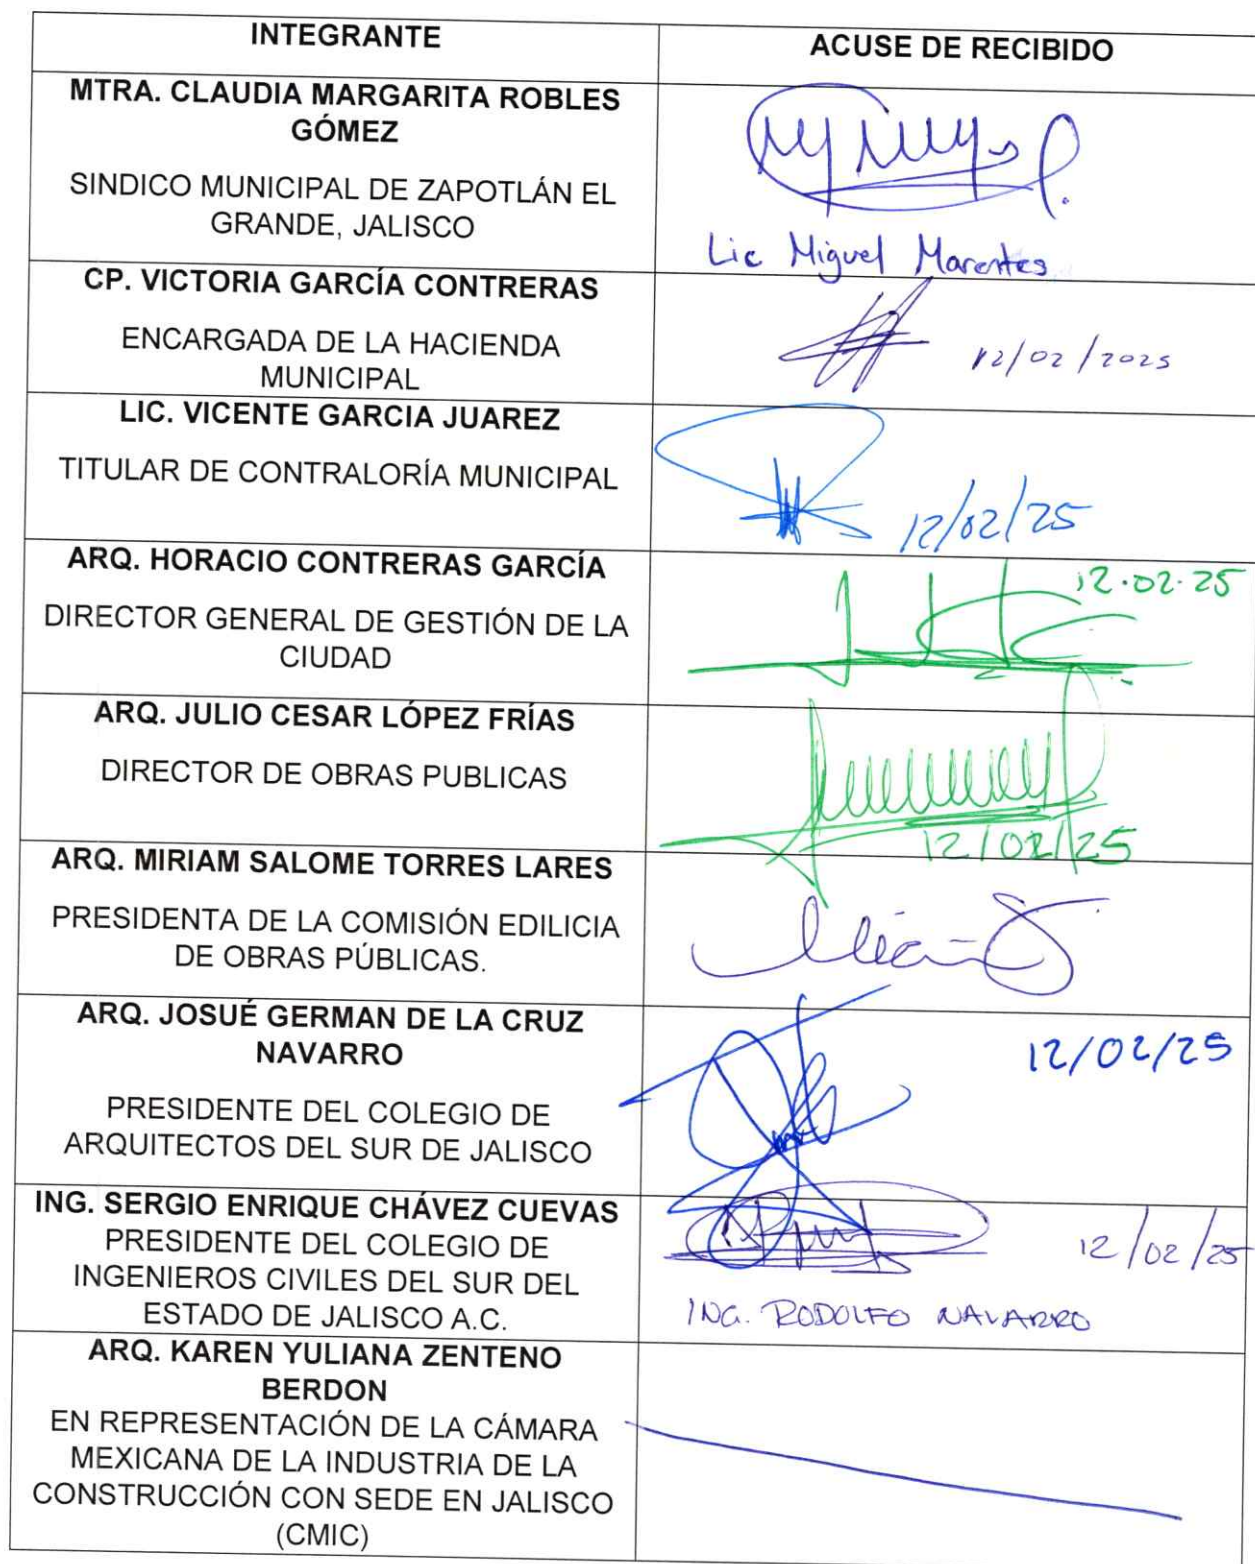 INTEGRANTE
ACUSE DE RECIBIDO
MTRA. CLAUDIA MARGARITA ROBLES
GÓMEZ
SINDICO MUNICIPAL DE ZAPOTLÁN EL
GRANDE, JALISCO
Lic Miguel Marentes
CP. VICTORIA GARCÍA CONTRERAS
ENCARGADA DE LA HACIENDA
MUNICIPAL
12/02/2025
LIC. VICENTE GARCIA JUAREZ
TITULAR DE CONTRALORÍA MUNICIPAL
12/02/25
ARQ. HORACIO CONTRERAS GARCÍA
DIRECTOR GENERAL DE GESTIÓN DE LA
CIUDAD
12.02.25
ARQ. JULIO CESAR LÓPEZ FRÍAS
DIRECTOR DE OBRAS PUBLICAS
12/02/25
ARQ. MIRIAM SALOME TORRES LARES
PRESIDENTA DE LA COMISIÓN EDILICIA
DE OBRAS PÚBLICAS.
ARQ. JOSUÉ GERMAN DE LA CRUZ
NAVARRO
PRESIDENTE DEL COLEGIO DE
ARQUITECTOS DEL SUR DE JALISCO
12/02/25
ING. SERGIO ENRIQUE CHÁVEZ CUEVAS
PRESIDENTE DEL COLEGIO DE
INGENIEROS CIVILES DEL SUR DEL
ESTADO DE JALISCO A.C.
12/02/25
ING. RODOLFO NAVARRO
ARQ. KAREN YULIANA ZENTENO
BERDON
EN REPRESENTACIÓN DE LA CÁMARA
MEXICANA DE LA INDUSTRIA DE LA
CONSTRUCCIÓN CON SEDE EN JALISCO
(CMIC)